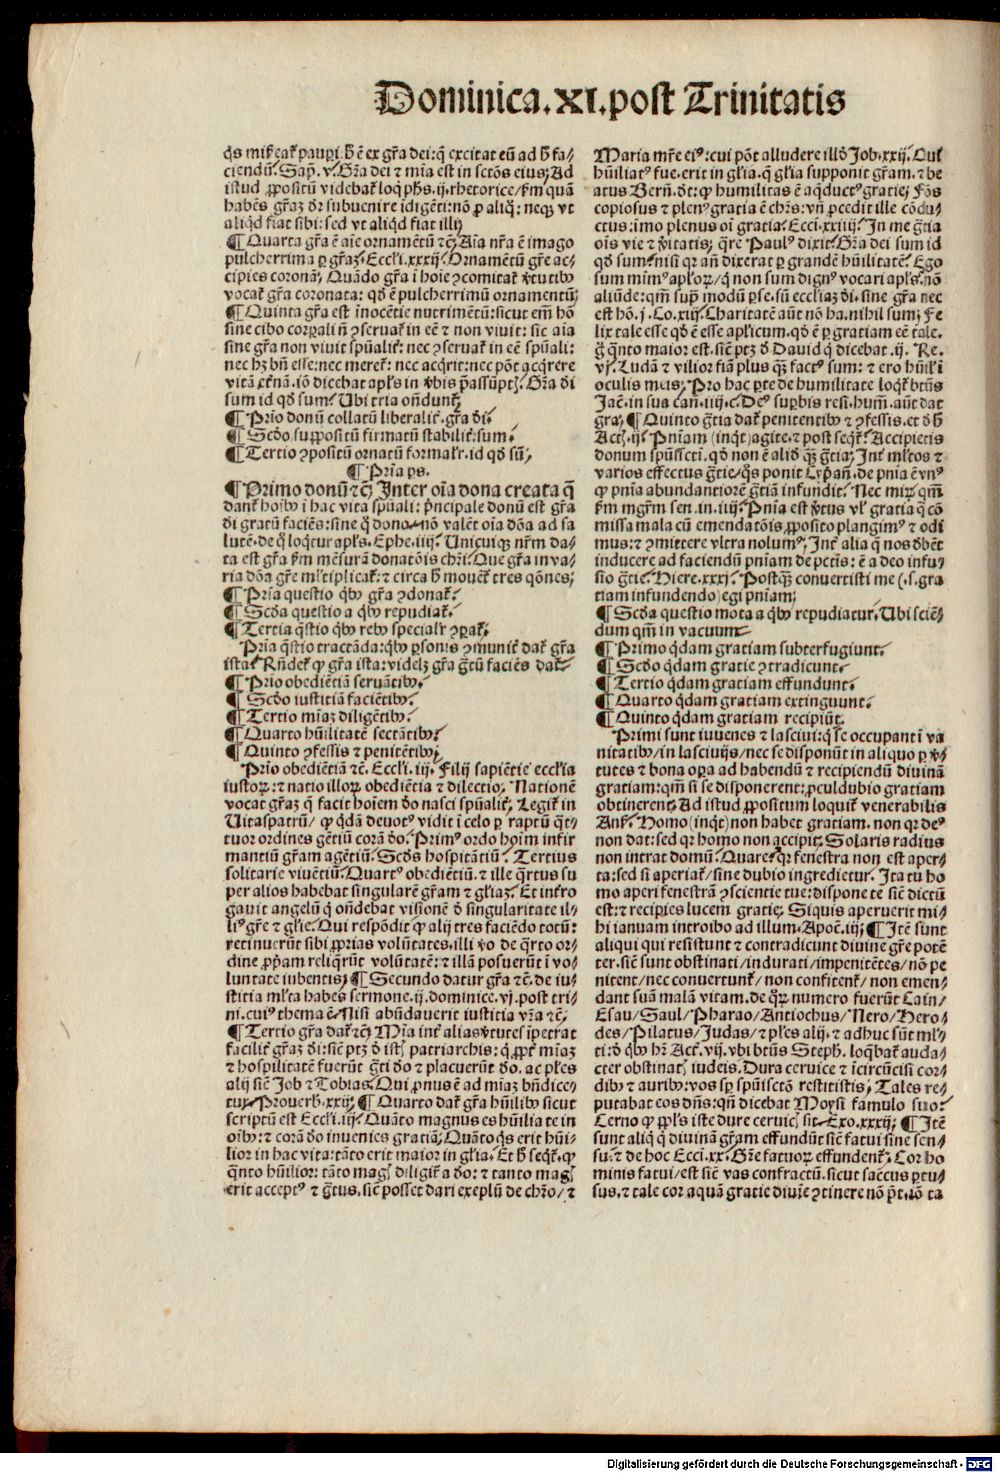 Dominica.XI.post Trinitatis
q̃s mis̃eat᷑ pauꝑi. h̃ ẽ ex gr̃a dei: q̃ excitat eũ ad h̃ fa⸗
ciendũ. Sap̃. v. Gr̃a dei ⁊ mĩa est in sctõs eius; Ad
istud ꝓpositũ videbat᷑ loq̃ phs̃. ij. rhetorice/ s̃m quã
habẽs gr̃az dr̃ subuenire ĩdigẽti: nõ ꝓ aliq̃: neqꝫ vt
aliq̃d fiat sibi: sed vt aliq̃d fiat illi;
¶ Quarta gr̃a ẽ aĩe ornamẽtũ ⁊c̃. Aĩa nr̃a ẽ imago
pulcherrima ꝑ gr̃az. Eccli. xxxij. Ornamẽtũ gr̃e ac⸗
cipies coronã; Quãdo gr̃a ĩ hoĩe ꝯcomitat᷑ ṽtutibꝰ
vocat᷑ gr̃a coronata: qd̃ ẽ pulcherrimũ ornamentũ;
¶ Quinta gr̃a est ĩnocẽtie nutrimẽtũ: sicut em̃ hõ
sine cibo corꝑali nõ ꝯseruat᷑ in eẽ ⁊ non viuit: sic aĩa
sine gr̃a non viuit spũalit᷑: nec ꝯseruat᷑ in eẽ spũali:
nec hꝫ bñ esse: nec meret᷑: nec acq̃rit: nec põt acq̃rere
vitã et̃nã. iõ dicebat apl̃s in ṽbis p̃assũpt̃; Gr̃a d̃i
sum id qd̃ sum. Ubi tria oñdunt᷑;
¶ Pr̃io donũ collatũ liberalit᷑. gr̃a d̃i.
¶ Scd̃o supposĩtũ firmatũ stabilit᷑: sum.
¶ Tertio ꝯpositũ ornatũ formalr̃. id qd̃ sũ;
¶ Pr̃ia ps.
¶ Primo donũ ⁊c̃; Inter oĩa dona creata q̃
dant᷑ hoĩbꝰ ĩ hac vita spũali: p̃ncipale donũ est gr̃a
d̃i gratũ faciẽs: sine q̃ dono nõ valẽt oĩa dõa ad sa
lutẽ. de q̃ loq̃tur apl̃s. Ephe. iiij. Unicuiqꝫ nr̃m da⸗
ta est gr̃a s̃m mẽsurã donatõis chr̃i. Que gr̃a in va⸗
ria dõa gr̃e ml̃tiplicat᷑: ⁊ circa h̃ mouẽt᷑ tres qõnes;
¶ Pr̃ia questio q̃bꝰ gr̃a ꝯdonat᷑.
¶ Scd̃a questio a q̃bꝰ repudiat᷑.
¶ Tertia q̃stio q̃bꝰ rebꝰ specialr̃ ꝯꝑat᷑.
Pr̃ia q̃stio tractãda: q̃bꝰ ꝑsonis ꝯmunit᷑ dat᷑ gr̃a
ista. Rñdet᷑ ꝙ gr̃a ista: videlꝫ gr̃a g̃tũ faciẽs dat᷑
¶ Pr̃io obediẽtiã seruãtibꝰ.
¶ Scd̃o iustitiã faciẽtibꝰ.
¶ Tertio mĩaz diligẽtibꝰ.
¶ Quarto hũilitatẽ sectãtibꝰ.
¶ Quinto ꝯfessis ⁊ penitẽtibꝰ;
Pr̃io obediẽtiã ⁊c̃. Eccli. iij. Filij sapiẽtie eccl̃ia
iustoꝝ: ⁊ natio illoꝝ obediẽtia ⁊ dilectio. Nationẽ
vocat gr̃az q̃ facit hoĩem d̃o nasci spũalit᷑; Legit᷑ in
Vitaspatrũ/ ꝙ q̃dã deuotꝰ vidit ĩ celo ꝑ raptũ q̃t⸗
tuor ordines gẽtiũ corã d̃o. Primꝰ ordo hoĩm infir
mantiũ gr̃am agẽtiũ. Scd̃s hospitãtiũ. Tertius
solitarie viuẽtiũ. Quartꝰ obediẽtiũ. ⁊ ille q̃rtus su
per alios habebat singularẽ gr̃am ⁊ gl̃iaz. Et inter̃ro
gauit angelũ q̃ oñdebat visionẽ d̃ singularitate il⸗
liꝰ gr̃e ⁊ gl̃ie. Qui respõdit ꝙ alij tres faciẽdo totũ:
retinuerũt sibi ꝓprias volũtates. illi ṽo de q̃rto or⸗
dine ꝓpam reliq̃rũt volũtatẽ: ⁊ illã posuerũt ĩ vo⸗
luntate iubentis; ¶ Secundo datur gr̃a ⁊c̃. de iu⸗
stitia ml̃ta habes sermone. ij. dominice. vj. post tri⸗
ni. cuiꝰ thema ẽ. Nisi abũdauerit iustitia vr̃a ⁊c̃;
¶ Tertio gr̃a dat᷑ ⁊c̃; Mĩa int᷑ alias ṽtutes ĩpetrat
facilit᷑ gr̃az d̃i: sic̃ ptꝫ d̃ ist᷑ patriarchis: q̃ ꝓpt᷑ mĩaz
⁊ hospitalitatẽ fuerũt g̃ti d̃o ⁊ placuerũt d̃o. ac pl̃es
alij sic̃ Job ⁊ Tobias. Qui ꝓnus ẽ ad mĩaz bñdice⸗
tur. Prouerb̃. xxij; ¶ Quarto dat᷑ gr̃a hũilibꝰ sicut
scriptũ est Eccli. iij. Quãto magnus es hũilia te in
oĩbꝰ: ⁊ corã d̃o inuenies gratiã; Quãto q̃s erit hũi⸗
lior in hac vita: tãto erit maior in gl̃ia. Et h̃ seq̃t᷑. ꝙ
q̃nto hũilior: tãto magꝭ diligit᷑ a d̃o: ⁊ tanto magꝭ
erit acceptꝰ ⁊ g̃tus. sic̃ posset dari exẽplũ de chr̃o/ ⁊
Maria mr̃e eiꝰ: cui põt alludere illd̃ Job. xxij. Qui
hũiliatꝰ fue. erit in gl̃ia. q̃ gl̃ia supponit gr̃am. ⁊ be
atus Berñ. d̃t: ꝙ humilitas ẽ aq̃ductꝰ gratie; Fõs
copiosus ⁊ plenꝰ gratia ẽ chr̃s: vñ ꝓcedit ille cõdu⸗
ctus: imo plenus oĩ gratia. Ecci. xxiiij. In me g̃tia
oĩs vie ⁊ ṽitatis; q̃re Paulꝰ dixit. Gr̃a dei sum id
qd̃ sum. nisi qr añ dixerat ꝑ grandẽ hũilitatẽ. Ego
sum mĩmꝰ apl̃oꝝ/ q̃ non sum dignꝰ vocari apl̃s. nõ
aliũde: qm̃ sup̃ modũ ꝑse. sũ eccl̃iaz d̃i. sine gr̃a nec
est hõ. j. Co. xiij. Charitatẽ aũt nõ ha. nihil sum; Fe
lix tale esse qd̃ ẽ esse apl̃icum. qd̃ ẽ ꝑ gratiam eẽ tale.
g̃ q̃nto maior est. sic̃ ptꝫ d̃ Dauid q̃ dicebat. ij. Re.
vj. Ludã ⁊ vilior fiã plus qꝫ factꝰ sum: ⁊ ero hũil᷑ ĩ
oculis meis; Pro hac ꝑte de humilitate loq̃t᷑ bt̃us
Jac̃. in sua cañ. iiij. c. Deꝰ suꝑbis resi. hum̃. aũt dat
gra; ¶ Quinto g̃tia dat᷑ penitentibꝰ ⁊ ꝯfessis. ⁊ d̃ h̃
Act̃. ij. Pñiam (inq̃t) agite. ⁊ post seq̃t᷑. Accipietis
donum spũsscti. qd̃ non ẽ aliud qꝫ g̃tia; Int᷑ ml̃tos ⁊
varios effectus g̃tie. q̃s ponit Cypañ. de pñia ẽ vnꝰ
ꝙ pñia abundantiorẽ g̃tiã infundit. Nec miꝝ qm̃
s̃m mgr̃m sen. in. iiij. Pñia est ṽtus vl̃ gratia q̃ cõ
missa mala cũ emendatõis ꝓposito plangimꝰ ⁊ odi
mus: ⁊ ꝯmittere vltra nolumꝰ; Int᷑ alia q̃ nos d̃bẽt
inducere ad faciendũ pñiam de pctĩs: ẽ a deo infu⸗
sio g̃tie. Hiere. xxxj. Postqꝫ conuertisti me (.s. gra
tiam infundendo) egi pñiam;
¶ Scd̃a questio mota a q̃bꝰ repudiatur. Ubi sciẽ⸗
dum qm̃ in vacuum
¶ Primo q̃dam gratiam subterfugiunt.
¶ Scd̃o q̃dam gratie ꝯtradicunt.
¶ Tertio q̃dam gratiam effundunt.
¶ Quarto q̃dam gratiam extinguunt.
¶ Quinto q̃dam gratiam recipiũt.
Primi sunt iuuenes ⁊ lasciui: q̃ se occupant ĩ va
nitatibꝰ/ in lasciuijs/ nec se disponũt in aliquo ꝑ ṽ⸗
tutes ⁊ bona oꝑa ad habendũ ⁊ recipiendũ diuinã
gratiam: qm̃ si se disponerent: ꝓculdubio gratiam
obtinerent; Ad istud ꝓpositum loquit᷑ venerabilis
Anš. Homo (inq̃t) non habet gratiam. non qr deꝰ
non dat: sed qr homo non accipit; Solaris radius
non intrat domũ. Quare. qr fenestra non est aper⸗
ta: sed si aperiat᷑/ sine dubio ingredietur. Ita tu ho
mo aperi fenestrã ꝯscientie tue: dispone te sic̃ dictũ
est: ⁊ recipies lucem gratie; Siquis aperuerit mi⸗
hi ianuam introibo ad illum. Apoc̃. iij; ¶ Itẽ sunt
aliqui qui resistunt ⁊ contradicunt diuine gr̃e potẽ
ter. sic̃ sunt obstinati/ indurati/ impenitẽtes/ nõ pe
nitent/ nec conuertunt᷑/ non confitent᷑/ non emen⸗
dant suã malã vitam. de q̃ꝝ numero fuerũt Cain/
Esau/ Saul/ Pharao/ Antiochus/ Nero/ Hero⸗
des/ Pilatus/ Judas/ ⁊ pl̃es alij. ⁊ adhuc sũt ml̃⸗
ti: d̃ q̃bꝰ hr̃ Act̃. vij. vbi bt̃us Steph̃. loq̃bat᷑ auda⸗
cter obstinatꝭ iudeis. Dura ceruice ⁊ ĩcircũcisi cor⸗
dibꝰ ⁊ auribꝰ: vos sꝑ spũiscto restitistis; Tales re⸗
putabat eos dñs: qñ dicebat Moysi famulo suo:
Cerno ꝙ ppl̃s iste dure ceruicꝭ sit. Exo. xxxij; ¶ Itẽ
sunt aliq̃ q̃ diuinã gr̃am effundũt sic̃ fatui sine sen⸗
su. ⁊ de hoc Ecci. xx. Gr̃e fatuoꝝ effundent᷑; Cor ho
minis fatui/ est sic̃ vas confractũ. sicut saccus ꝑtu⸗
sus. ⁊ tale cor aquã gratie diuĩe ꝯtinere nõ p̃t. iõ ta
Digitalisierung gefördert durch die Deutsche Forschungsgemeinschaft - DFG